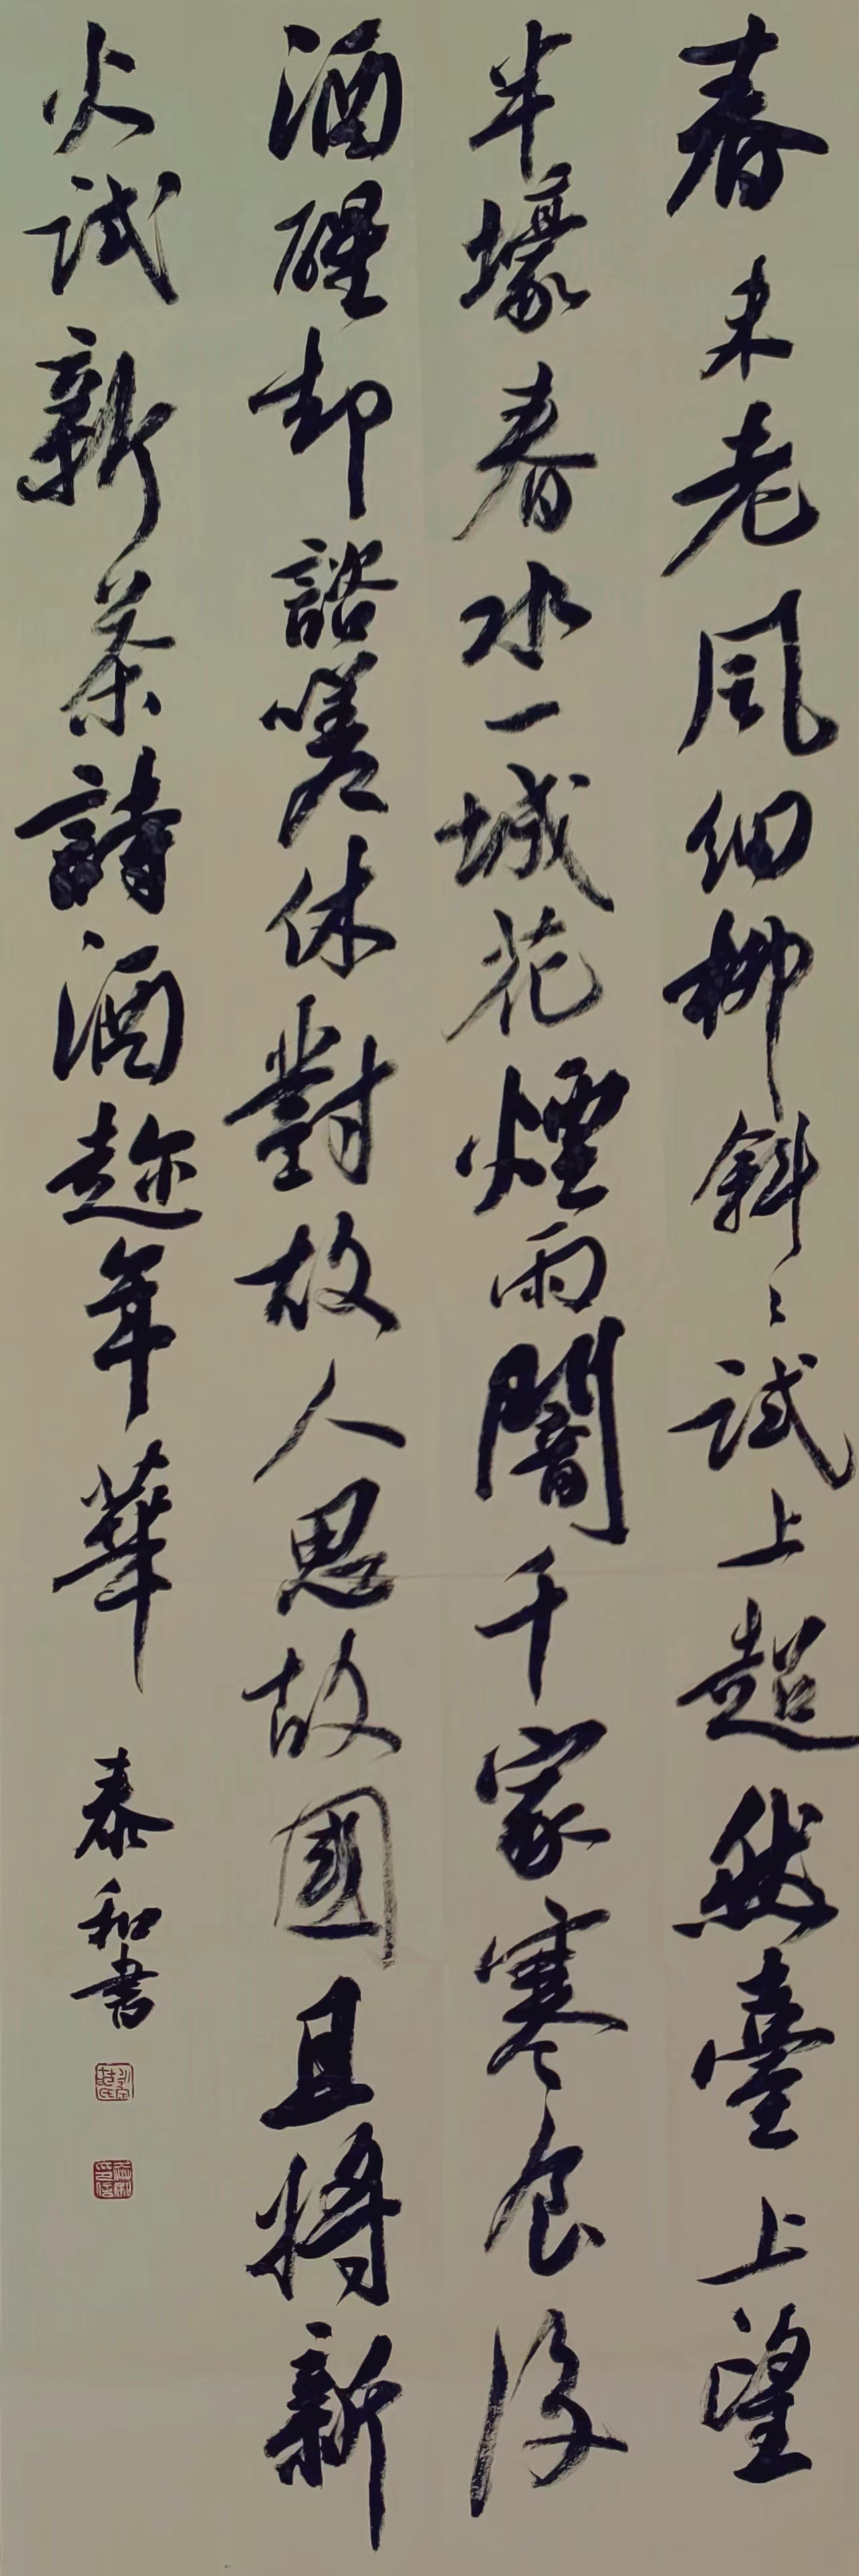 春未老風細柳斜〻試上超然臺上望
半壕春水一城花煙雨闇千家寒食後
酒醒却諮嗟休對故人思故國且將新
火試新茶詩酒趂年華
泰和書